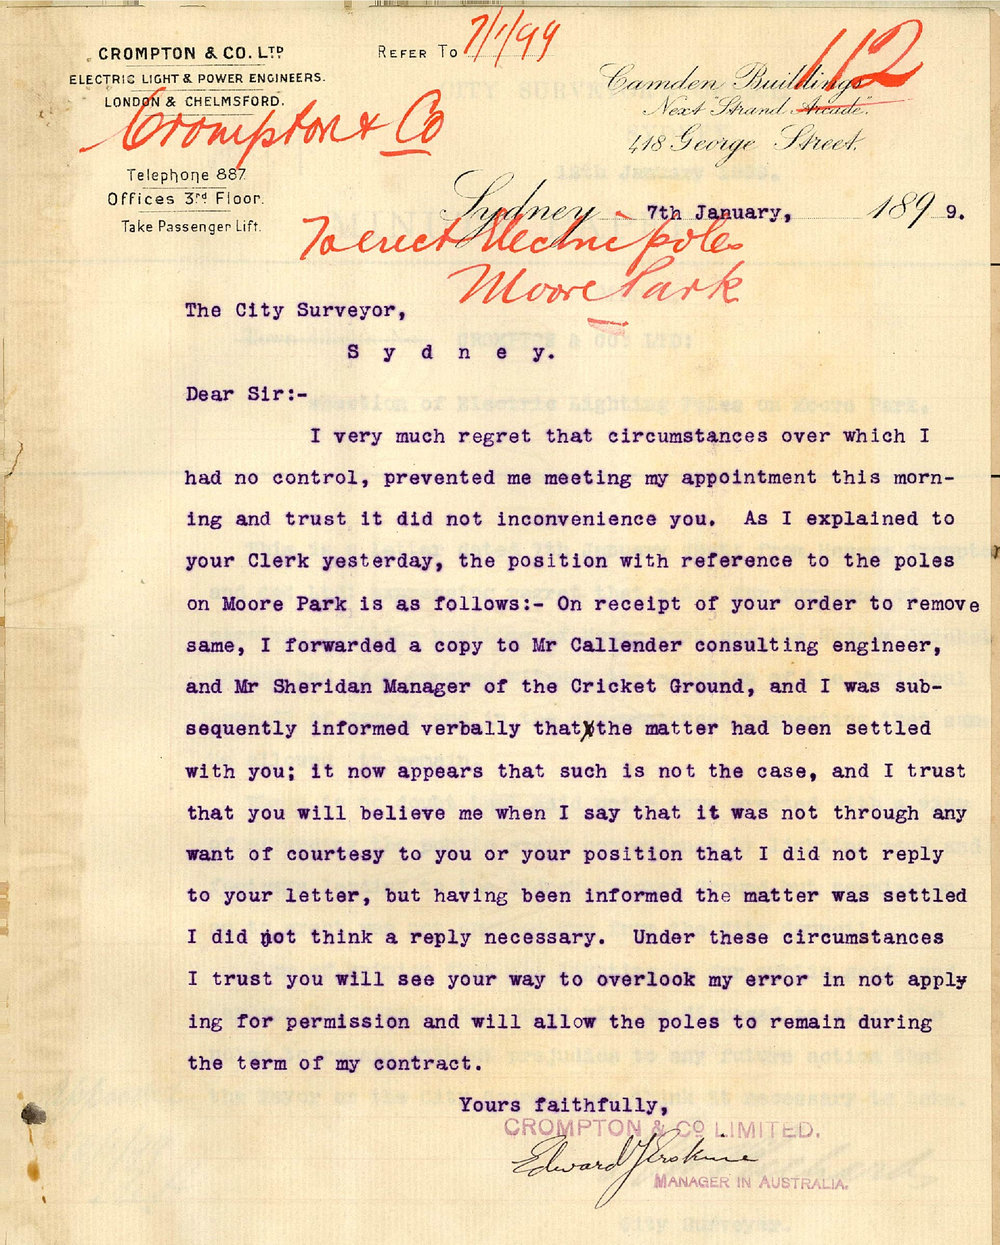 CROMPTON & CO. LTD
ELECTRIC LIGHT & POWER ENGINEERS.
LONDON & CHELMSFORD.
REFER TO 7/1/99
112
Camden Buildings
Next "Strand Arcade".
418 George Street.
Crompton & Co
Telephone 887
Offices 3rd Floor.
Take Passenger Lift.
Sydney 7th January, 189 9.
To erect Electric poles
Moore Park
The City Surveyor,
S y d n e y.
Dear Sir:-
I very much regret that circumstances over which I
had no control, prevented me meeting my appointment this morn-
ing and trust it did not inconvenience you. As I explained to
your Clerk yesterday, the position with reference to the poles
on Moore Park is as follows:- On receipt of your order to remove
same, I forwarded a copy to Mr Callender consulting engineer,
and Mr Sheridan Manager of the Cricket Ground, and I was sub-
sequently informed verbally that the matter had been settled
with you; it now appears that such is not the case, and I trust
that you will believe me when I say that it was not through any
want of courtesy to you or your position that I did not reply
to your letter, but having been informed the matter was settled
I did not think a reply necessary. Under these circumstances
I trust you will see your way to overlook my error in not apply
ing for permission and will allow the poles to remain during
the term of my contract.
Yours faithfully,
CROMPTON & CO LIMITED.
Edward J Erskine
MANAGER IN AUSTRALIA.